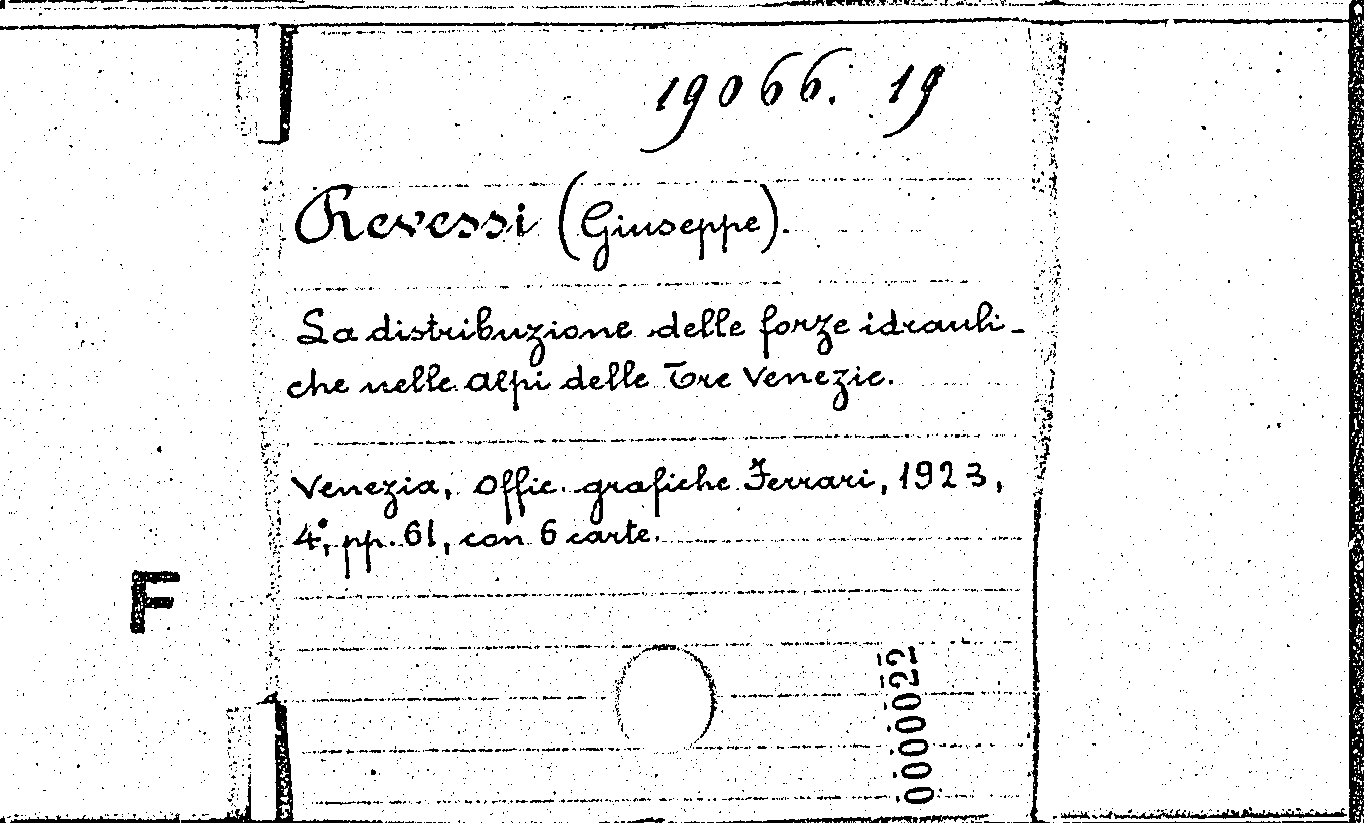 19066. 19
Revessi (Giuseppe).
La distribuzione delle forze idrauli-
che nelle Alpi delle Tre Venezie.
Venezia, Offic. grafiche Ferrari, 1923,
4°, pp. 61, con 6 carte.
F
0000022